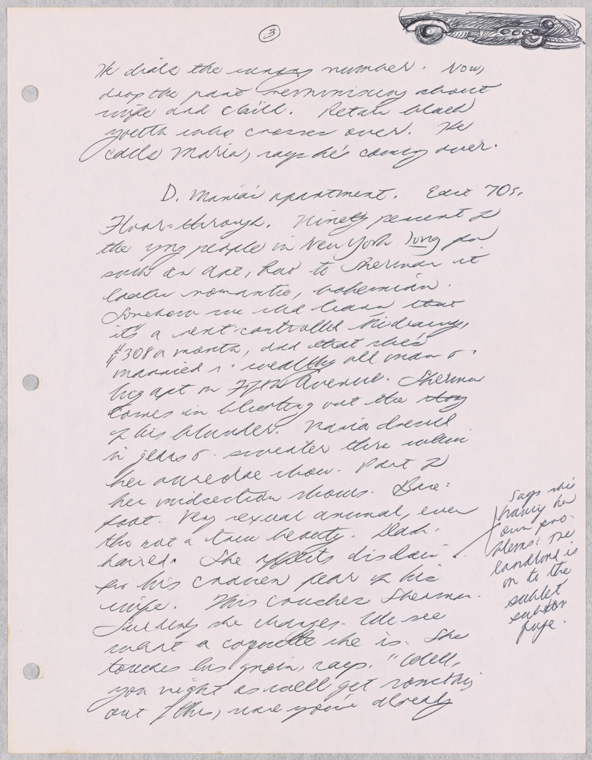 3
He dials the wrong number. Now,
drop the part reminiscing about
wife and child. Retain black
youth who crosses over. He
calls Maria, says he's coming over.
D. Maria's apartment. East 70s.
Floor-through. Ninety percent of
the yng people in New York long for
such an apt, but to Sherman it
looks romantic, bohemian.
Somehow we shd learn that
it's a rent-controlled hideaway,
$308 a month, and that she's
married to wealthy old man &
big apt on Fifth Avenue. Sherman
comes in blurting out the story
of his blunder. Maria dressed
in jeans & sweater thru which
her aureolae show. Part of
her midsection shows. Bare-
foot. Very sexual animal, even
tho not a true beauty. Dark-
haired. She affects disdain
for his craven fear of his
wife. This crushes Sherman.
Suddenly she changes. We see
what a coquette she is. She
touches his groin, says, "Well,
you might as well get something
out of this, since you're already
Says she's
having her
own pro-
blems: the
landlord is
on to the
sublet
subter-
fuge.